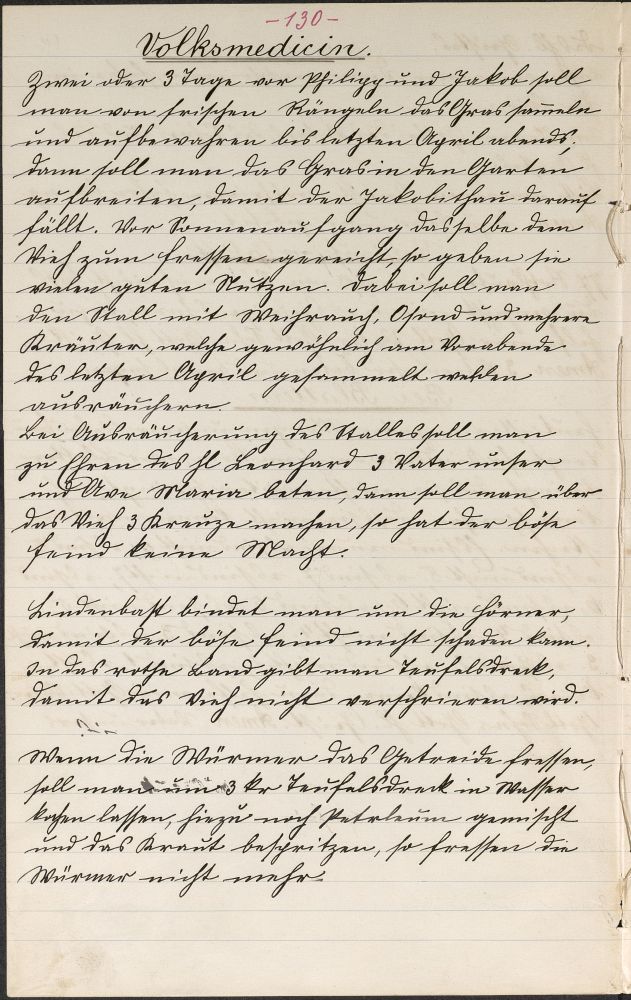 -130-
Volksmedicin.
Zwei oder 3 Tage vor Philipp und Jakob soll
man von frischen Rängeln das Gras sam̄eln
und aufbewahren bis letzten April abends;
dann soll man das Gras in den Garten
aufbreiten, damit der Jakobithau darauf
fällt. Vor Sonnenaufgang dasselbe dem
Vieh zum fressen gereicht, so geben sie
vielen guten Nutzen. Dabei soll man
den Stall mit Weihrauch, und mehrere
Kräuter, welche gewöhnlich am Vorabende
des letzten April gesammelt werden
ausräuchern.
Bei Ausräucherung des Stalles soll man
zu Ehren des hl Leonhard 3 Vater unser
und Ave Maria beten, dann soll man über
das Vieh 3 Kreuze machen, so hat der böse
feind keine Macht.
Lindenbast bindet man um die Hörner,
damit der böse feind nicht schaden kann.
In das rothe Band gibt man Teufelsdreck,
damit das Vieh nicht verschrieren wird.
Wenn die Würmer das Getreide fressen,
soll man um 3 kr Teufelsdreck in Wasser
kochen lassen, hiezu noch Petrleum gemischt
und das Kraut bespritzen, so fressen die
Würmer nicht mehr.